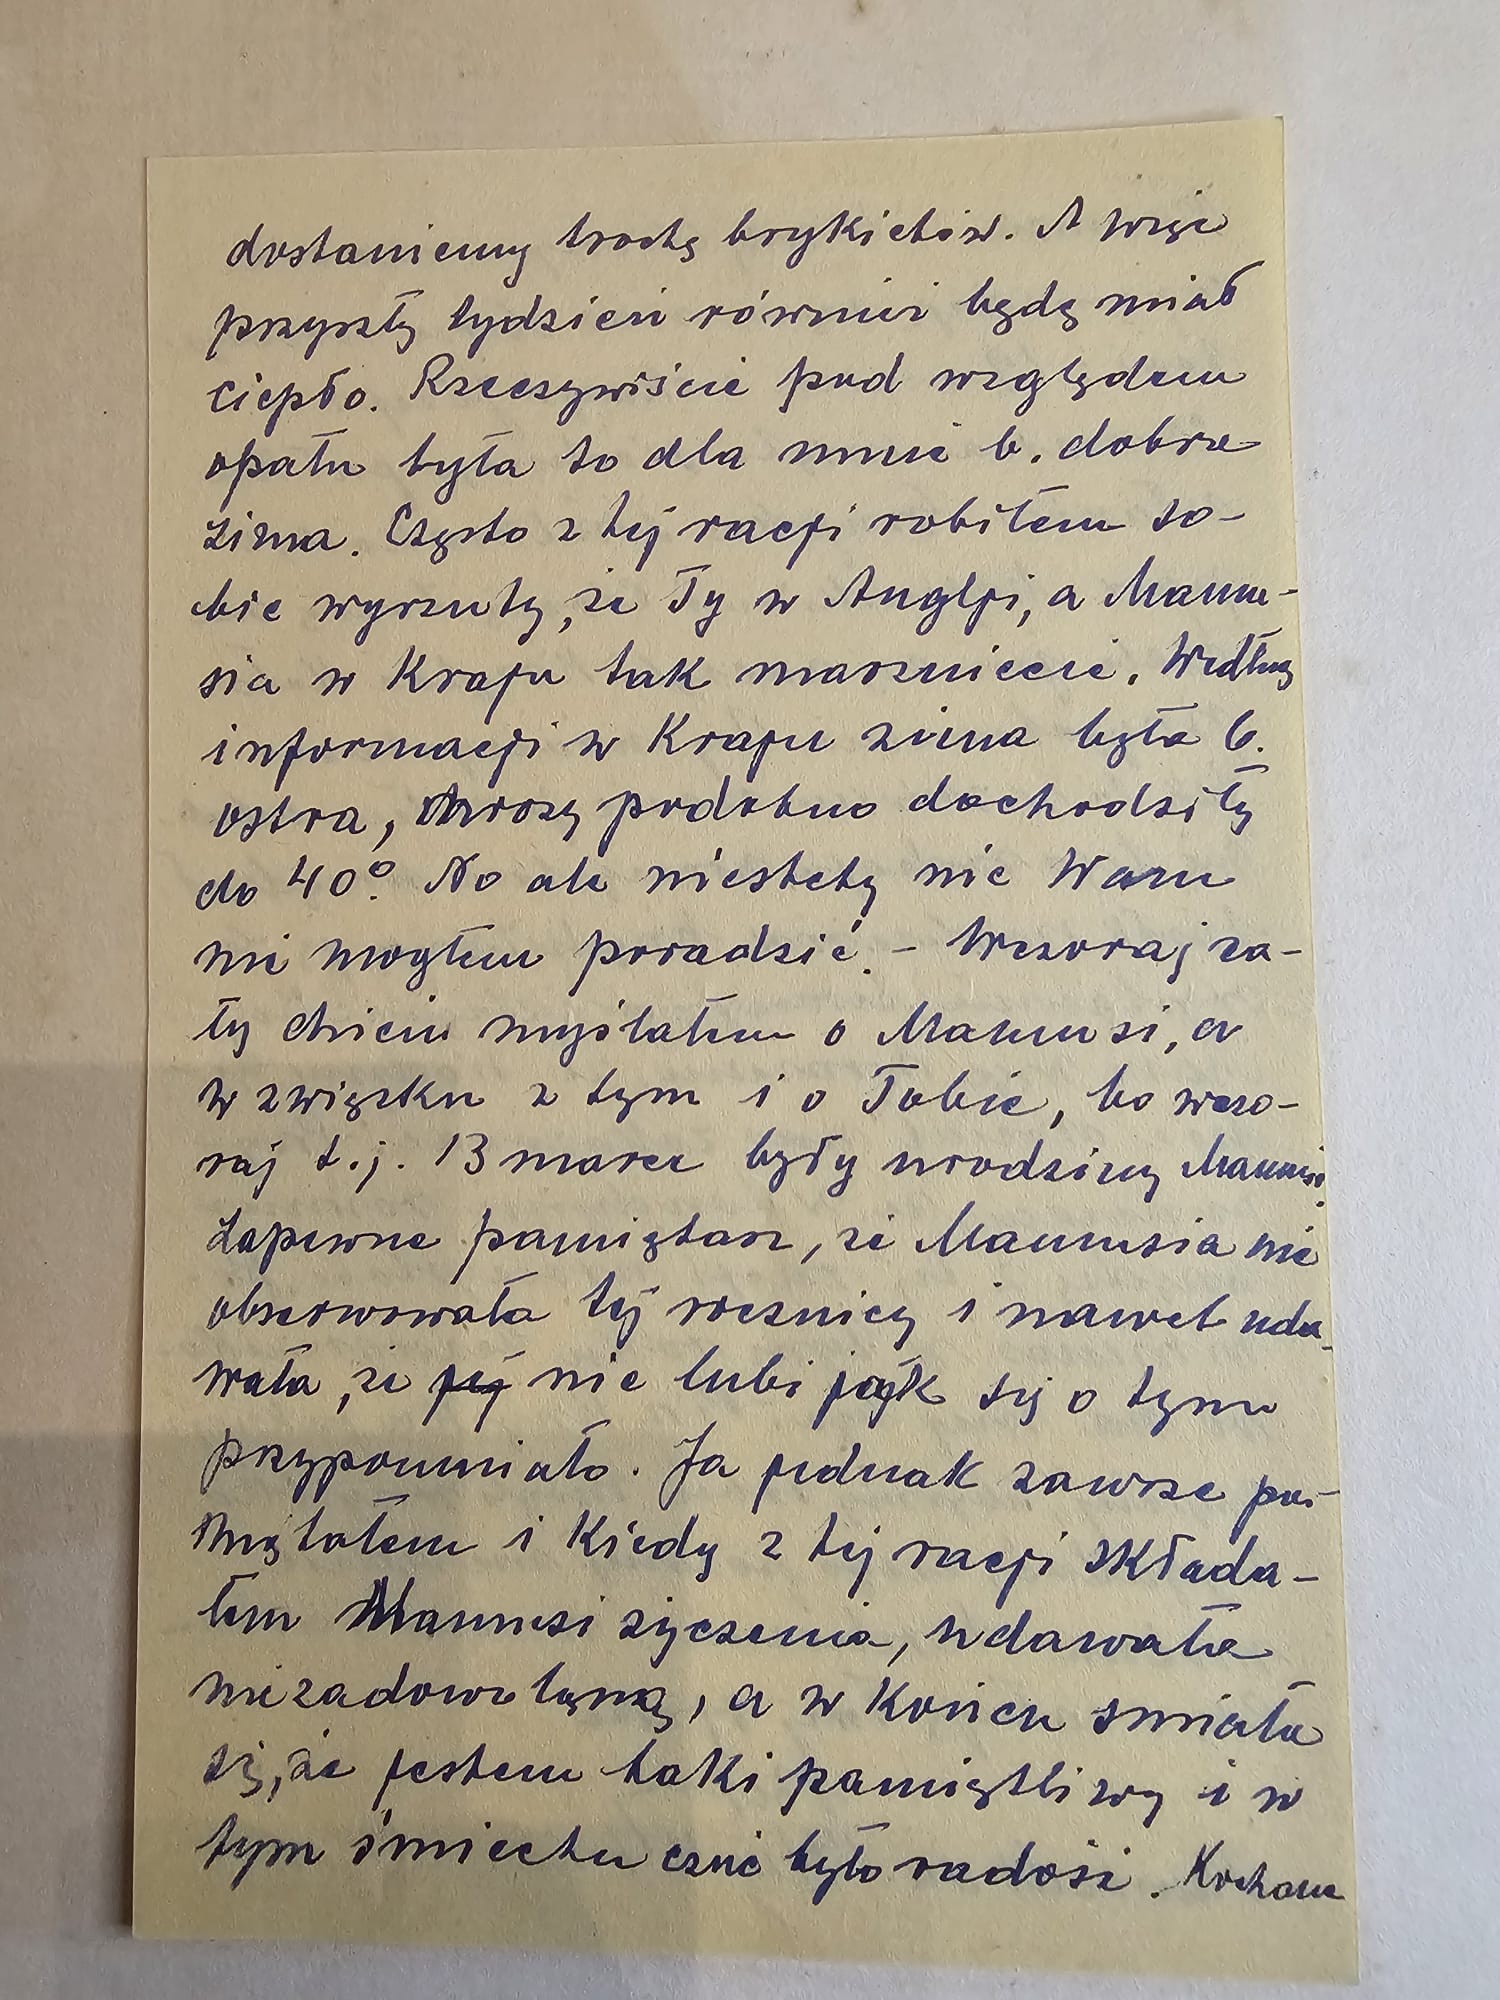 dostaniemy trochę brykietów. A więc
przyszły tydzień również będę miał
ciepło. Rzeczywiście pod względem
opału była to dla mnie b. dobra
zima. Często z tej racji robiłem so-
bie wyrzuty, że Ty w Anglji, a Mamu-
sia w Kraju tak marzniecie. Według
informacji w Kraju zima była b.
ostra, mrozy podobno dochodziły
do 40°. No ale niestety nic Wam
nie mogłem poradzić. – Wczoraj ca-
ły dzień myślałem o Mamusi, a
w związku z tym i o Tobie, bo wczo-
raj t.j. 13 marca były urodziny Mamusi.
Zapewne pamiętasz, że Mamusia nie
obserwowała tej rocznicy i nawet uda-
wała, że jej nie lubi jak się o tym
przypomniało. Ja jednak zawsze pa-
miętałem i kiedy z tej racji składa-
łem Mamusi życzenia, udawała
niezadowoloną, a w końcu śmiała
się, że jestem taki pamiętliwy i w
tym śmiechu czuć było radość. Kochana